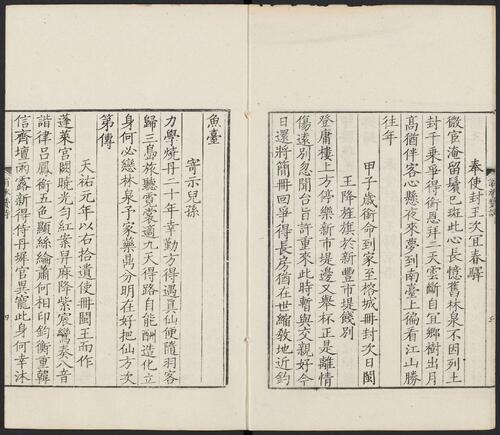 奉使封王次宜春驛
微宦淹留鬢巳斑此心長憶舊林泉不因列土
封千乘爭得銜恩拜二天雲斷自宜鄉樹出月
高猶伴客心懸夜來夢到南臺上徧看江山勝
往年
甲子歲銜命到家至榕城冊封次日閩
王降旌旗於新豐市堤餞別
登庸樓上方停樂新市堤邊又舉杯正是離情
傷遠別忽聞台旨許重來此時暫與交親好今
日還將簡冊回爭得長房猶在世縮敎地近釣
魚臺
寄示兒孫
力學燒丹二十年辛勤方得遇真仙便隨羽客
歸三島旋聽霓裳適九天得路自能酬造化立
身何必戀林泉予家藥鼎分明在好把仙方次
第傳
天祐元年以右拾遺使冊閩王而作
蓬萊宮闕曉光勻紅案舁麻降紫宸鸞奏八音
諧律呂鳳銜五色顯絲綸蕭何相印鈞衡重韓
信齊壇雨露新得侍丹墀官異寵此身何幸沐